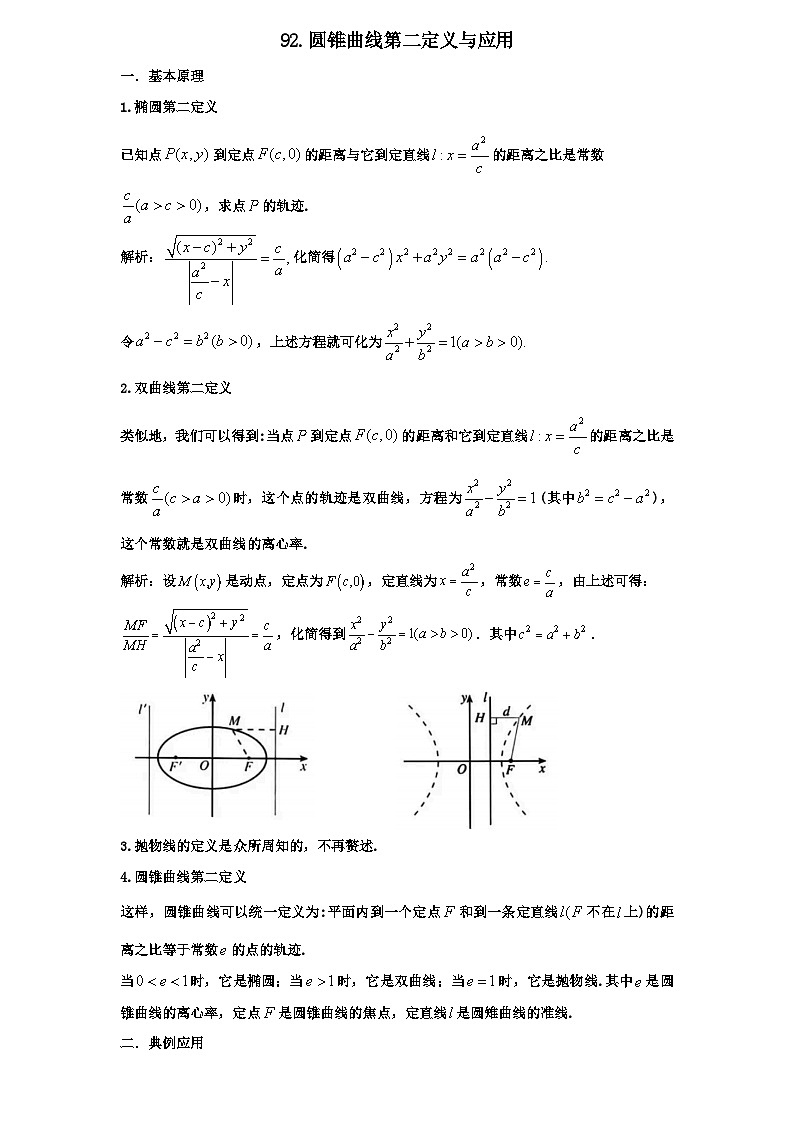 92.圆锥曲线第二定义与应用
一．基本原理
1.椭圆第二定义
已知点P(x,y)到定点F(c,0)的距离与它到定直线l:x=a²/c的距离之比是常数
c/a(a>c>0)，求点P的轨迹.
解析：√((x−c)²+y²)/|a²/c−x|=c/a,化简得(a²−c²)x²+a²y²=a²(a²−c²).
令a²−c²=b²(b>0)，上述方程就可化为x²/a²+y²/b²=1(a>b>0).
2.双曲线第二定义
类似地，我们可以得到:当点P到定点F(c,0)的距离和它到定直线l:x=a²/c的距离之比是
常数c/a(c>a>0)时，这个点的轨迹是双曲线，方程为x²/a²−y²/b²=1(其中b²=c²−a²)，
这个常数就是双曲线的离心率.
解析：设M(x,y)是动点，定点为F(c,0)，定直线为x=a²/c，常数e=c/a，由上述可得：
MF/MH=√((x−c)²+y²)/|a²/c−x|=c/a，化简得到x²/a²−y²/b²=1(a>b>0)．其中c²=a²+b²．
l′ y l
M H
F′ O F x
y l
H d M
O F x
3.抛物线的定义是众所周知的，不再赘述.
4.圆锥曲线第二定义
这样，圆锥曲线可以统一定义为:平面内到一个定点F和到一条定直线l(F不在l上)的距
离之比等于常数e的点的轨迹.
当0<e<1时，它是椭圆；当e>1时，它是双曲线；当e=1时，它是抛物线.其中e是圆
锥曲线的离心率，定点F是圆锥曲线的焦点，定直线l是圆雉曲线的准线.
二．典例应用